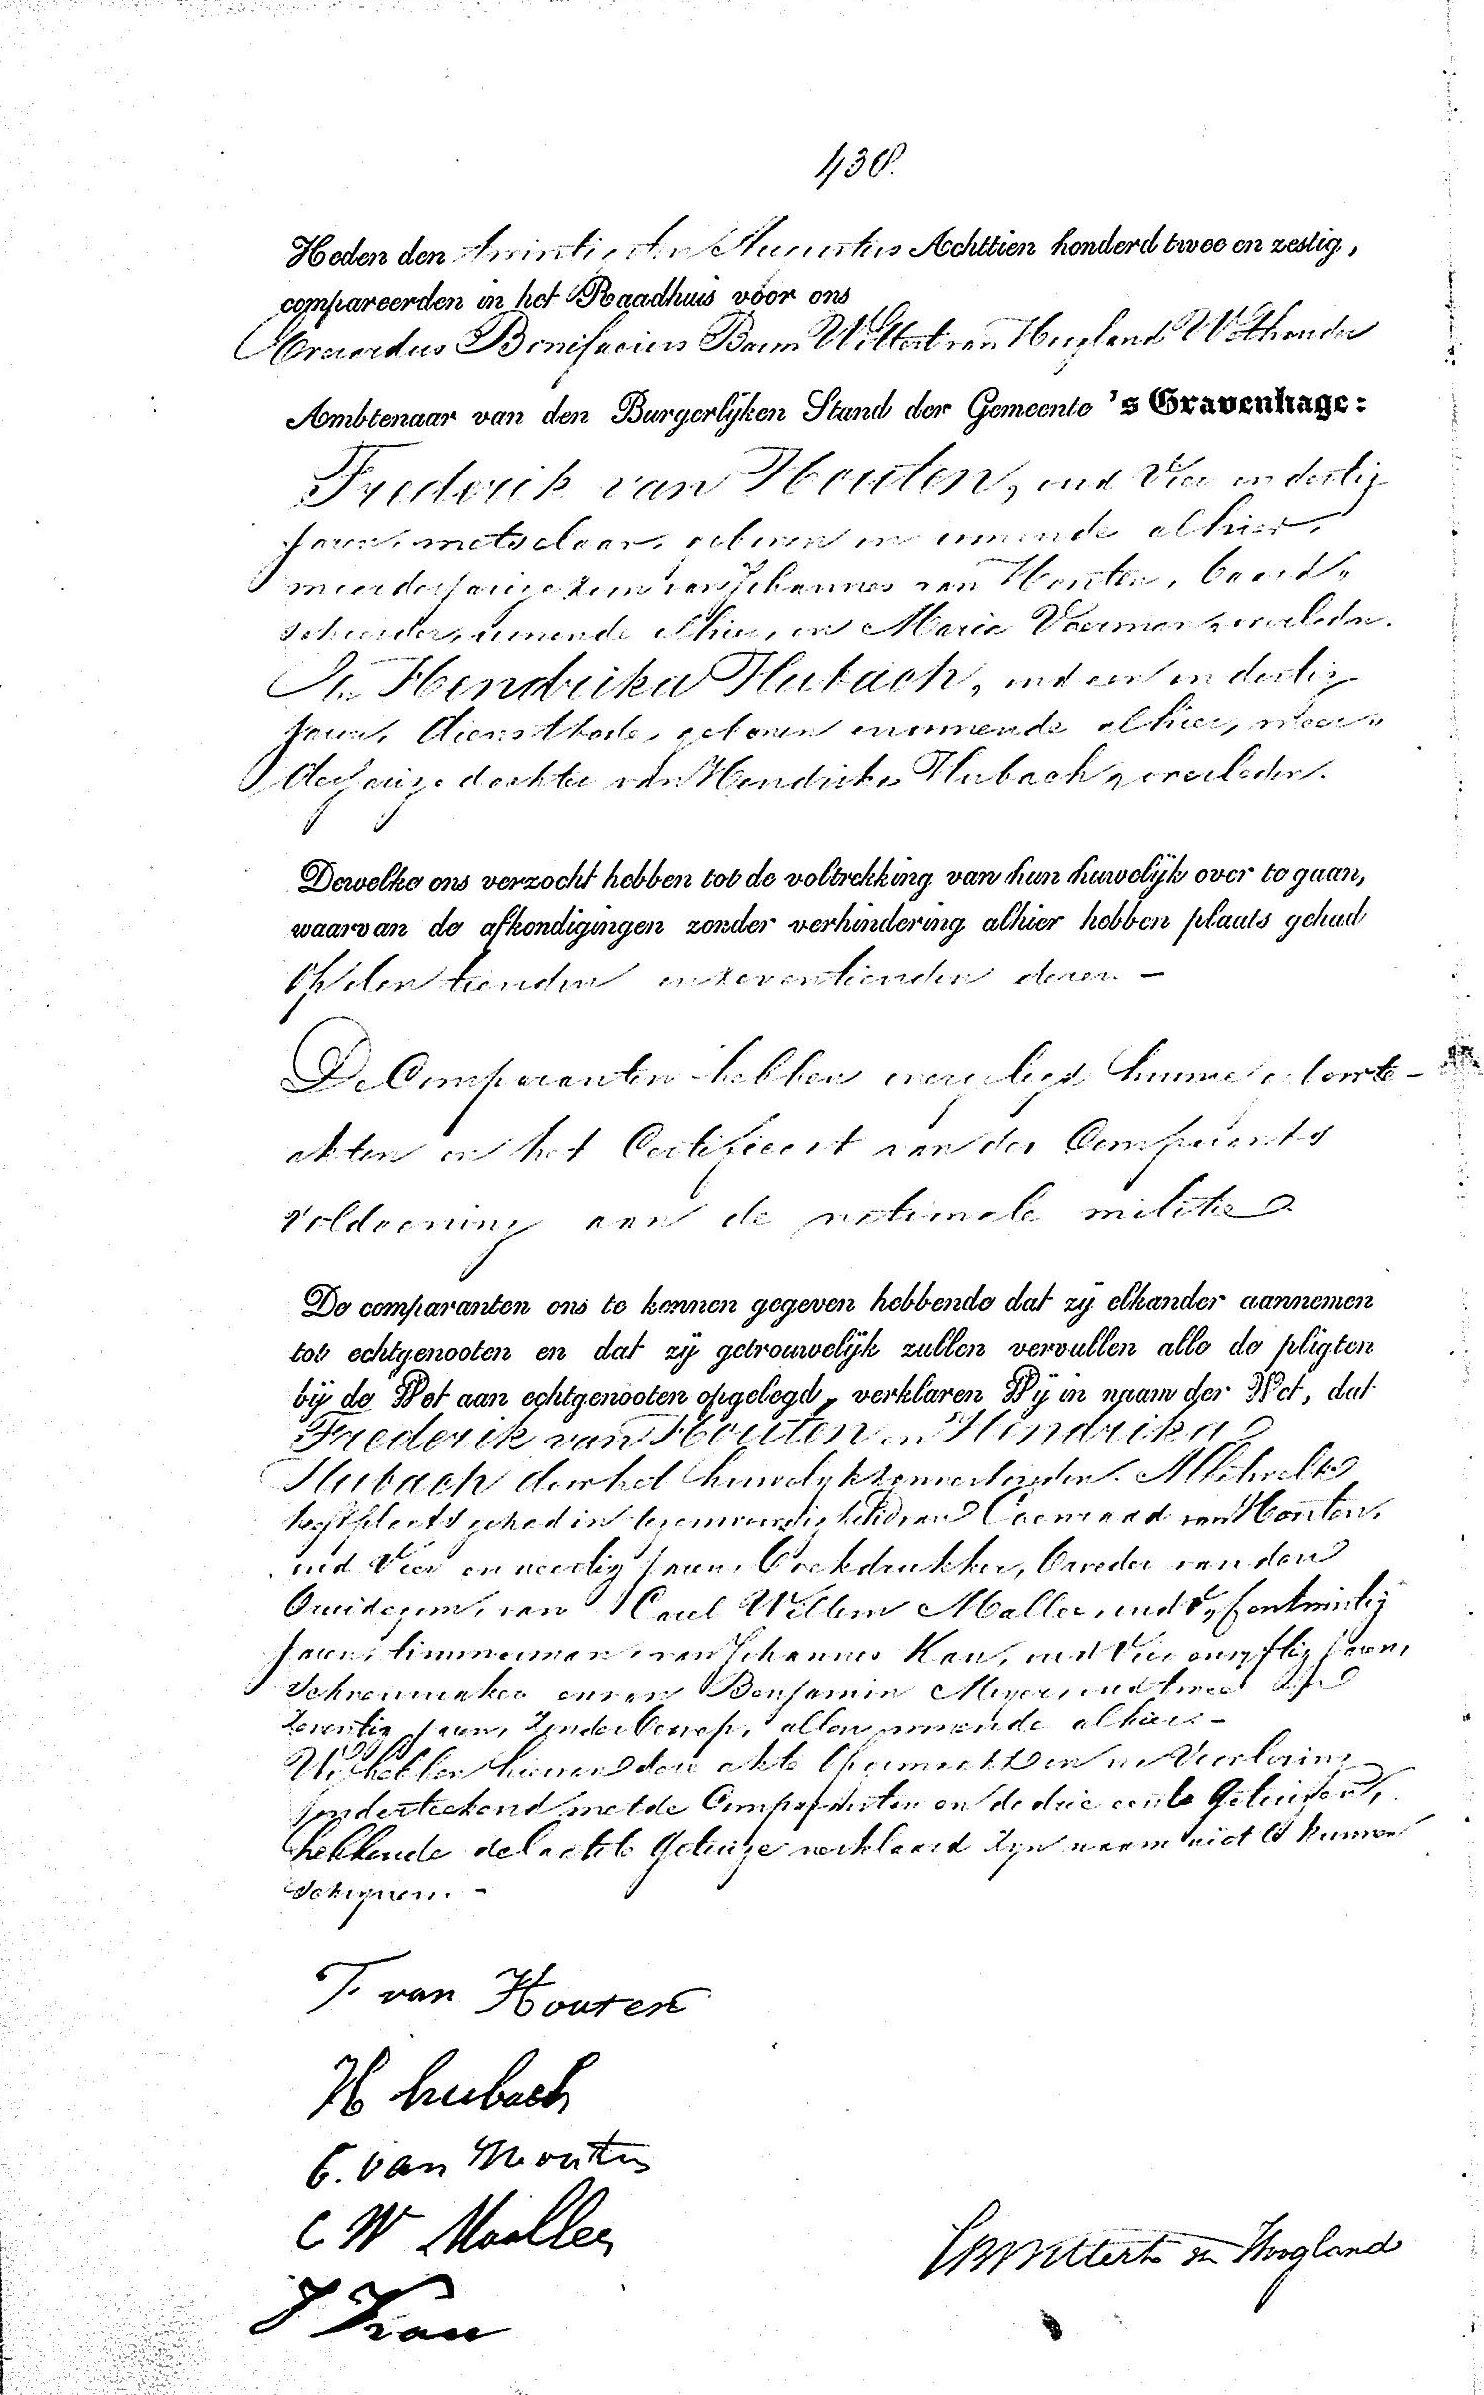 438.
Heden den twintigsten Augustus Achttien honderd twee en zestig,
compareerden in het Raadhuis voor ons
Everardus Bonifacius Baron Wittert van Hoogland Wethouder
Ambtenaar van den Burgerlijken Stand der Gemeente 's Gravenhage:
Frederik van Houten, oud Vier en dertig
Jaren, metselaar, geboren en wonende alhier,
meerderjarige zoon van Johannes van Houten, baard„
scheerder, wonende alhier, en Maria Voerman, overleden.
En Hendrika Hubach, oud een en dertig
Jaren, dienstbode, geboren en wonende alhier, meer„
derjarige dochter van Hendrika Hubach, overleden.
Dewelke ons verzocht hebben tot de voltrekking van hun huwelijk over te gaan,
waarvan de afkondigingen zonder verhindering alhier hebben plaats gehad
Op den tienden en zeventienden dezer. -
De Comparanten hebben overgelegd hunne geboorte-
akten en het Certificaat van des Comparants
voldoening aan de nationale militie
De comparanten ons te kennen gegeven hebbende dat zij elkander aannemen
tot echtgenooten en dat zij getrouwelijk zullen vervullen alle de pligten
bij de Wet aan echtgenooten opgelegd, verklaren Wij in naam der Wet, dat
Frederik van Houten en Hendrika
Hubach door het huwelijk zijn verbonden. Al hetwelk
heeft plaats gehad in tegenwoordigheid van Coenraad van Houten,
oud Vier en veertig Jaren, Boekdrukker, broeder van den
Bruidegom, van Carel Willem Mallee, oud Vijf en twintig
Jaren, timmerman, van Johannes Kau, oud Vier en vijftig Jaren,
Schoenmaker en van Benjamin Meyer, oud twee en
zeventig Jaren, zonder beroep, allen wonende alhier. -
Wij hebben hiervan deze akte opgemaakt en na Voorlezing
onderteekend met de Comparanten en de drie eerste Getuigen,
hebbende de laatste Getuige verklaard zijn naam niet te kunnen
schrijven. -
F. van Houten
H hubach
C. van Houten
C W Mallee
J Kau
EBWittert van Hoogland